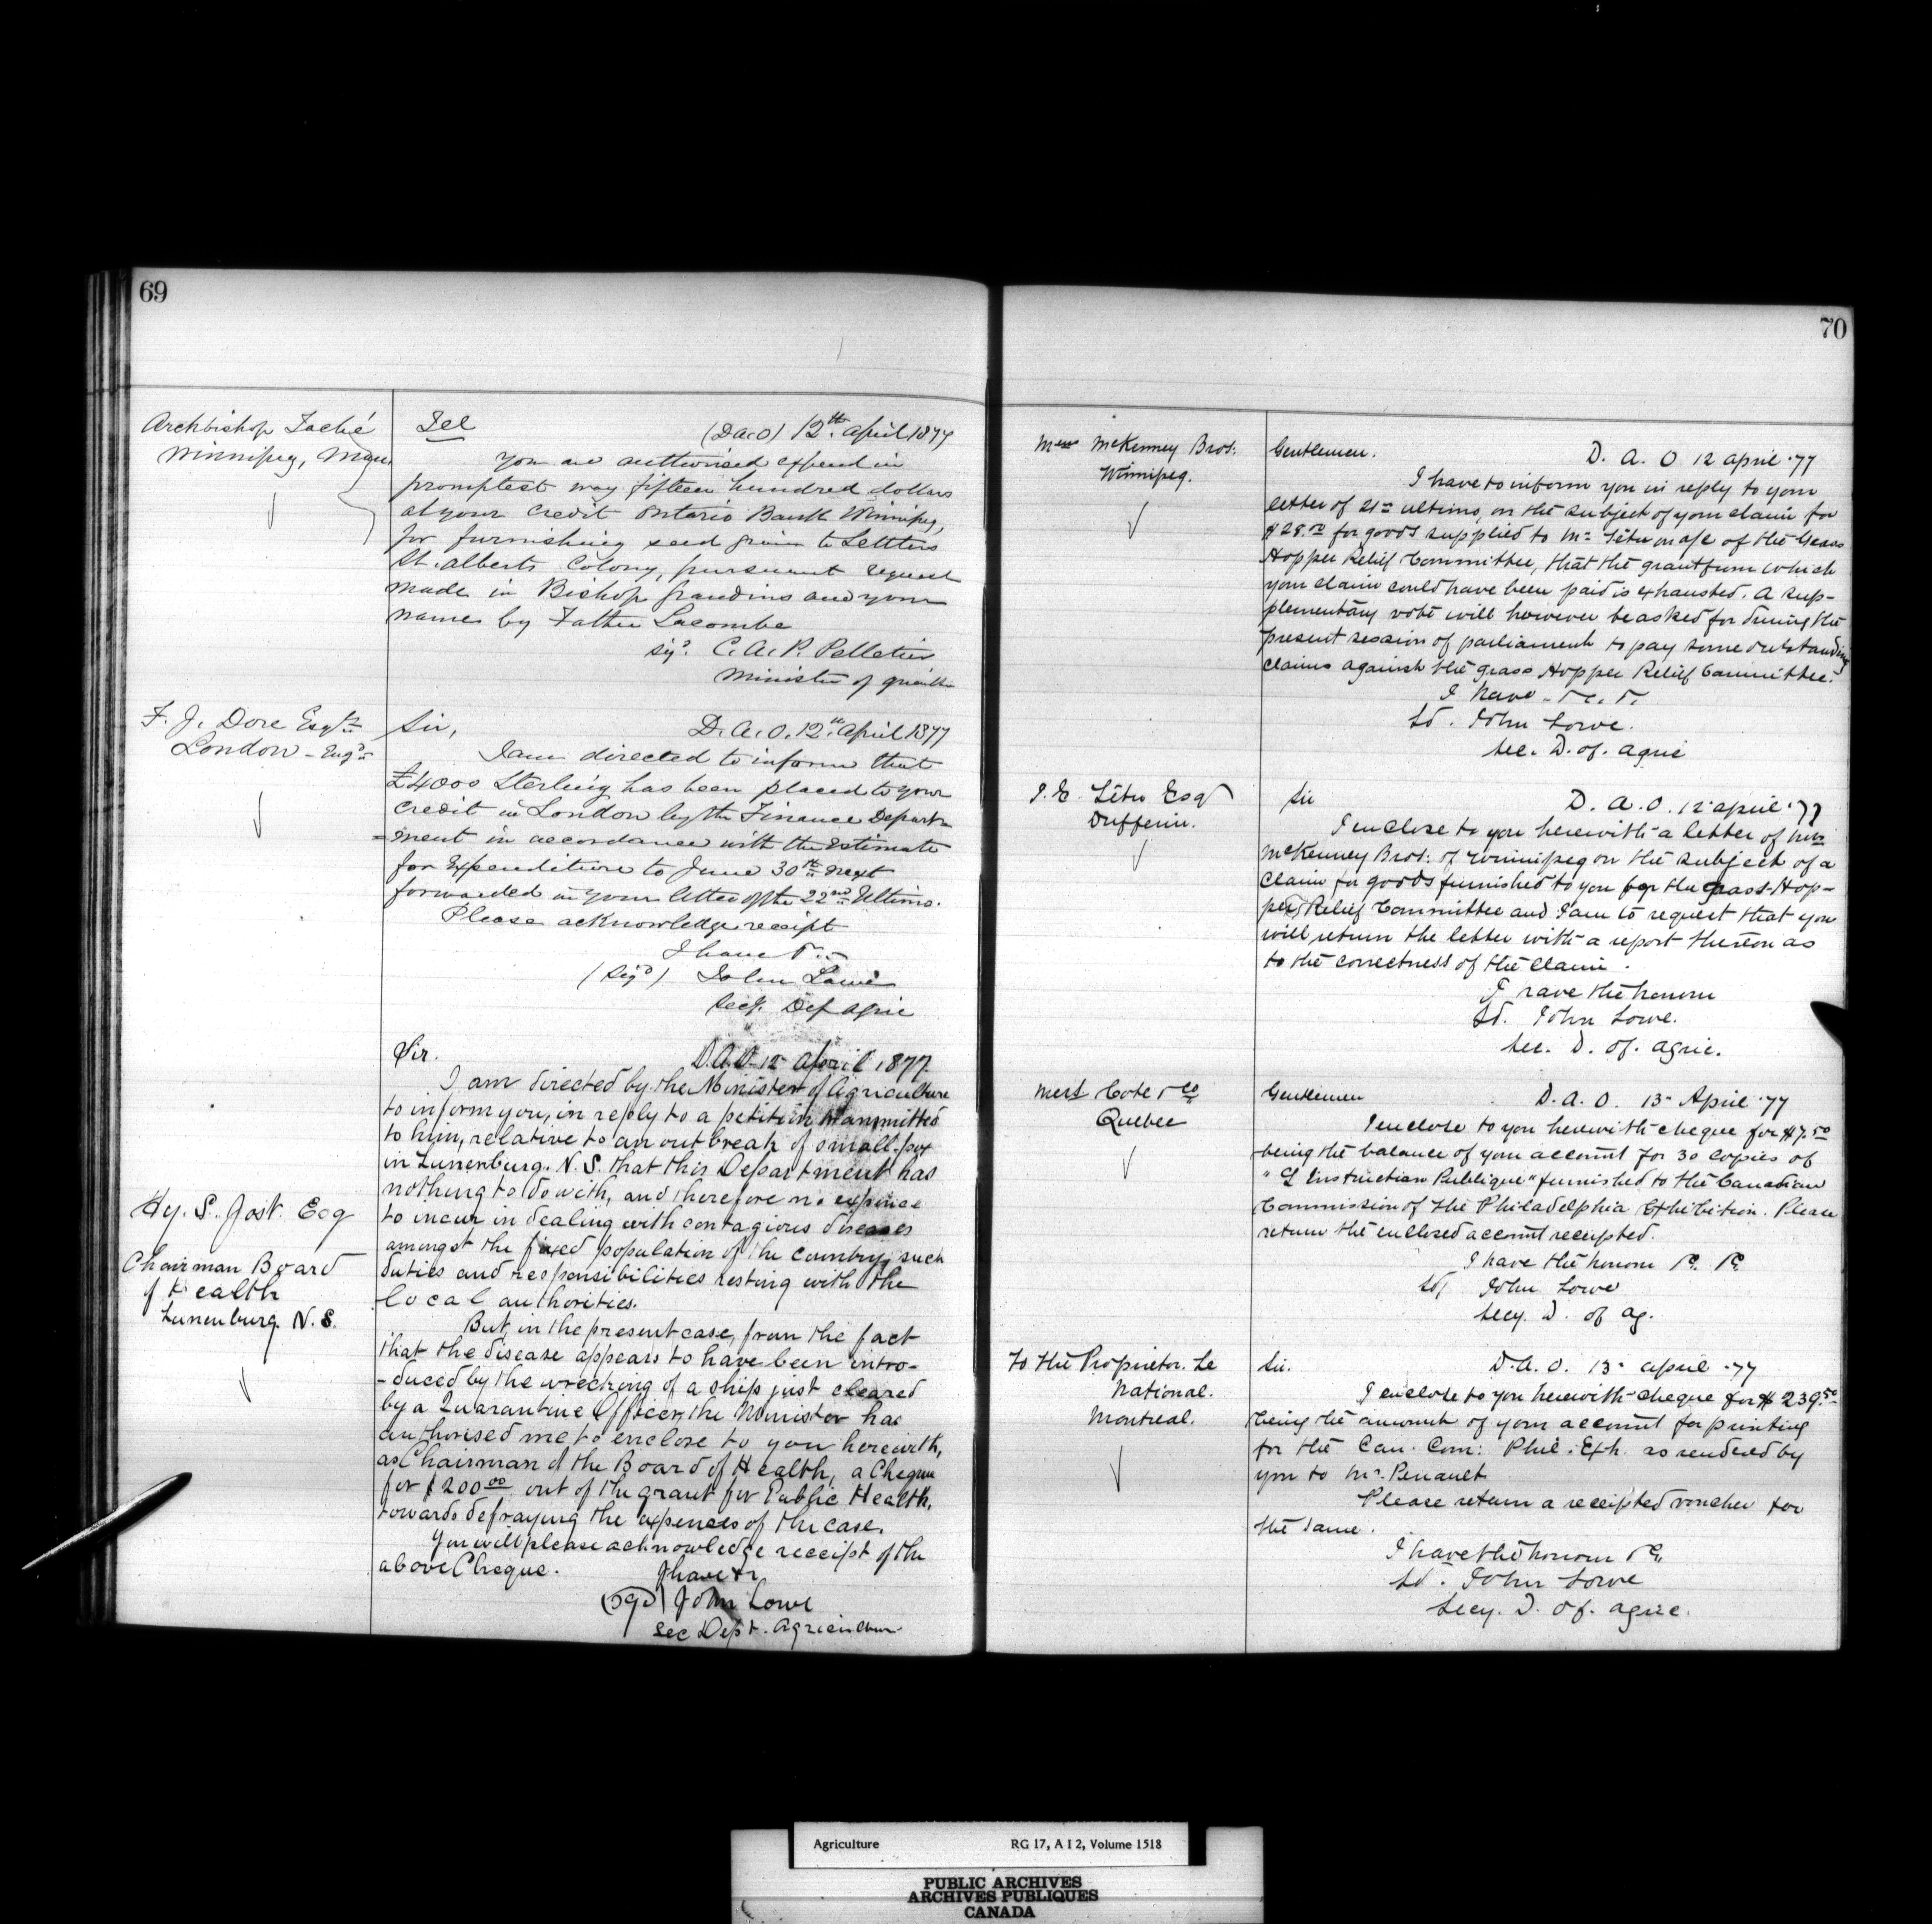 69
Archbishop Taché
Winnipeg,
Tel
(D.A.O) 12th April 1877
You are authorised expend in
promptest way fifteen hundred dollars
at your credit Ontario Bank Winnipeg,
for furnishing seed grain to Settlers
St. Alberts Colony, pursuant request
made in Bishop Grandins and your
names by Father Lacombe
Sigd. C. A. P. Pelletier
Minister of
F. J. Dore Esqre
London - Engd
Sir,
D.A.O. 12th April 1877
I am directed to inform that
£4000 Sterling has been placed to your
credit in London by the Finance Depart-
=ment in accordance with the Estimate
for Expenditure to June 30th next
forwarded in your letter of the 22nd Ultimo.
Please acknowledge receipt
I have &c
(Sigd) John Lowe
Secy. Dep Agric
Hy. S. Jost. Esq
Chairman Board
of Health
Lunenburg. N. S.
Sir.
D.A.O. 12 April 1877.
I am directed by the Minister of Agriculture
to inform you, in reply to a petition transmitted
to him, relative to an out break of small-pox
in Lunenburg. N. S. that this Department has
nothing to do with, and therefore no expence
to incur in dealing with contagious diseases
amongst the fixed population of the country, such
duties and responsibilities resting with the
local authorities.
But, in the present case, from the fact
that the disease appears to have been intro-
-duced by the wrecking of a ship just cleared
by a Quarantine Officer, the Minister has
authorised me to enclose to you herewith,
as Chairman of the Board of Health, a Cheque
for $200.00 out of the grant for Public Health,
towards defraying the expenses of the case.
You will please acknowledge receipt of the
above Cheque.
I have &c
(Sgd) John Lowe
Sec Dept. Agriculture
70
Mess McKenney Bros.
Winnipeg.
Gentlemen.
D. A. O 12 April '77
I have to inform you in reply to your
letter of 21st ultimo, on the subject of your claim for
$28.00 for goods supplied to Mr Têtu on a/c of the Grass
Hopper Relief Committee, that the grant from which
your claim could have been paid is exhausted. A sup-
plementary vote will however be asked for during the
present session of parliament to pay some outstanding
claims against the Grass Hopper Relief Committee.
I have - &c. &.
Sd. John Lowe.
Sec. D. of. Agric
J. E. Têtu Esqr
Dufferin.
Sir
D. A. O. 12 April '77
I enclose to you herewith a letter of Mess
McKenney Bros: of Winnipeg on the subject of a
claim for goods furnished to you for the Grass-Hop-
per Relief Committee and I am to request that you
will return the letter with a report thereon as
to the correctness of the claim.
I have the honour
Sd. John Lowe.
Sec. D. of. Agric.
Mess Cote & Co
Quebec
Gentlemen
D. A. O. 13 April '77
I enclose to you herewith cheque for $7.50
being the balance of your account for 30 copies of
"L Instruction Publique" furnished to the Canadian
Commission of the Philadelphia Exhibition. Please
return the enclosed account receipted.
I have the honour &c. &c.
Sd John Lowe
Secy. D. of Ag.
To the Proprietor. Le
National.
Montreal.
Sir.
D. A. O. 13 April '77
I enclose to you herewith cheque for $239.50
being the amount of your account for printing
for the Can. Com: Phil. Exh. as rendered by
you to Mr. Perrault
Please return a receipted voucher for
the same.
I have the honour &c.
Sd. John Lowe
Secy. D. of. Agric.
Agriculture RG 17, A I 2, Volume 1518
PUBLIC ARCHIVES
ARCHIVES PUBLIQUES
CANADA